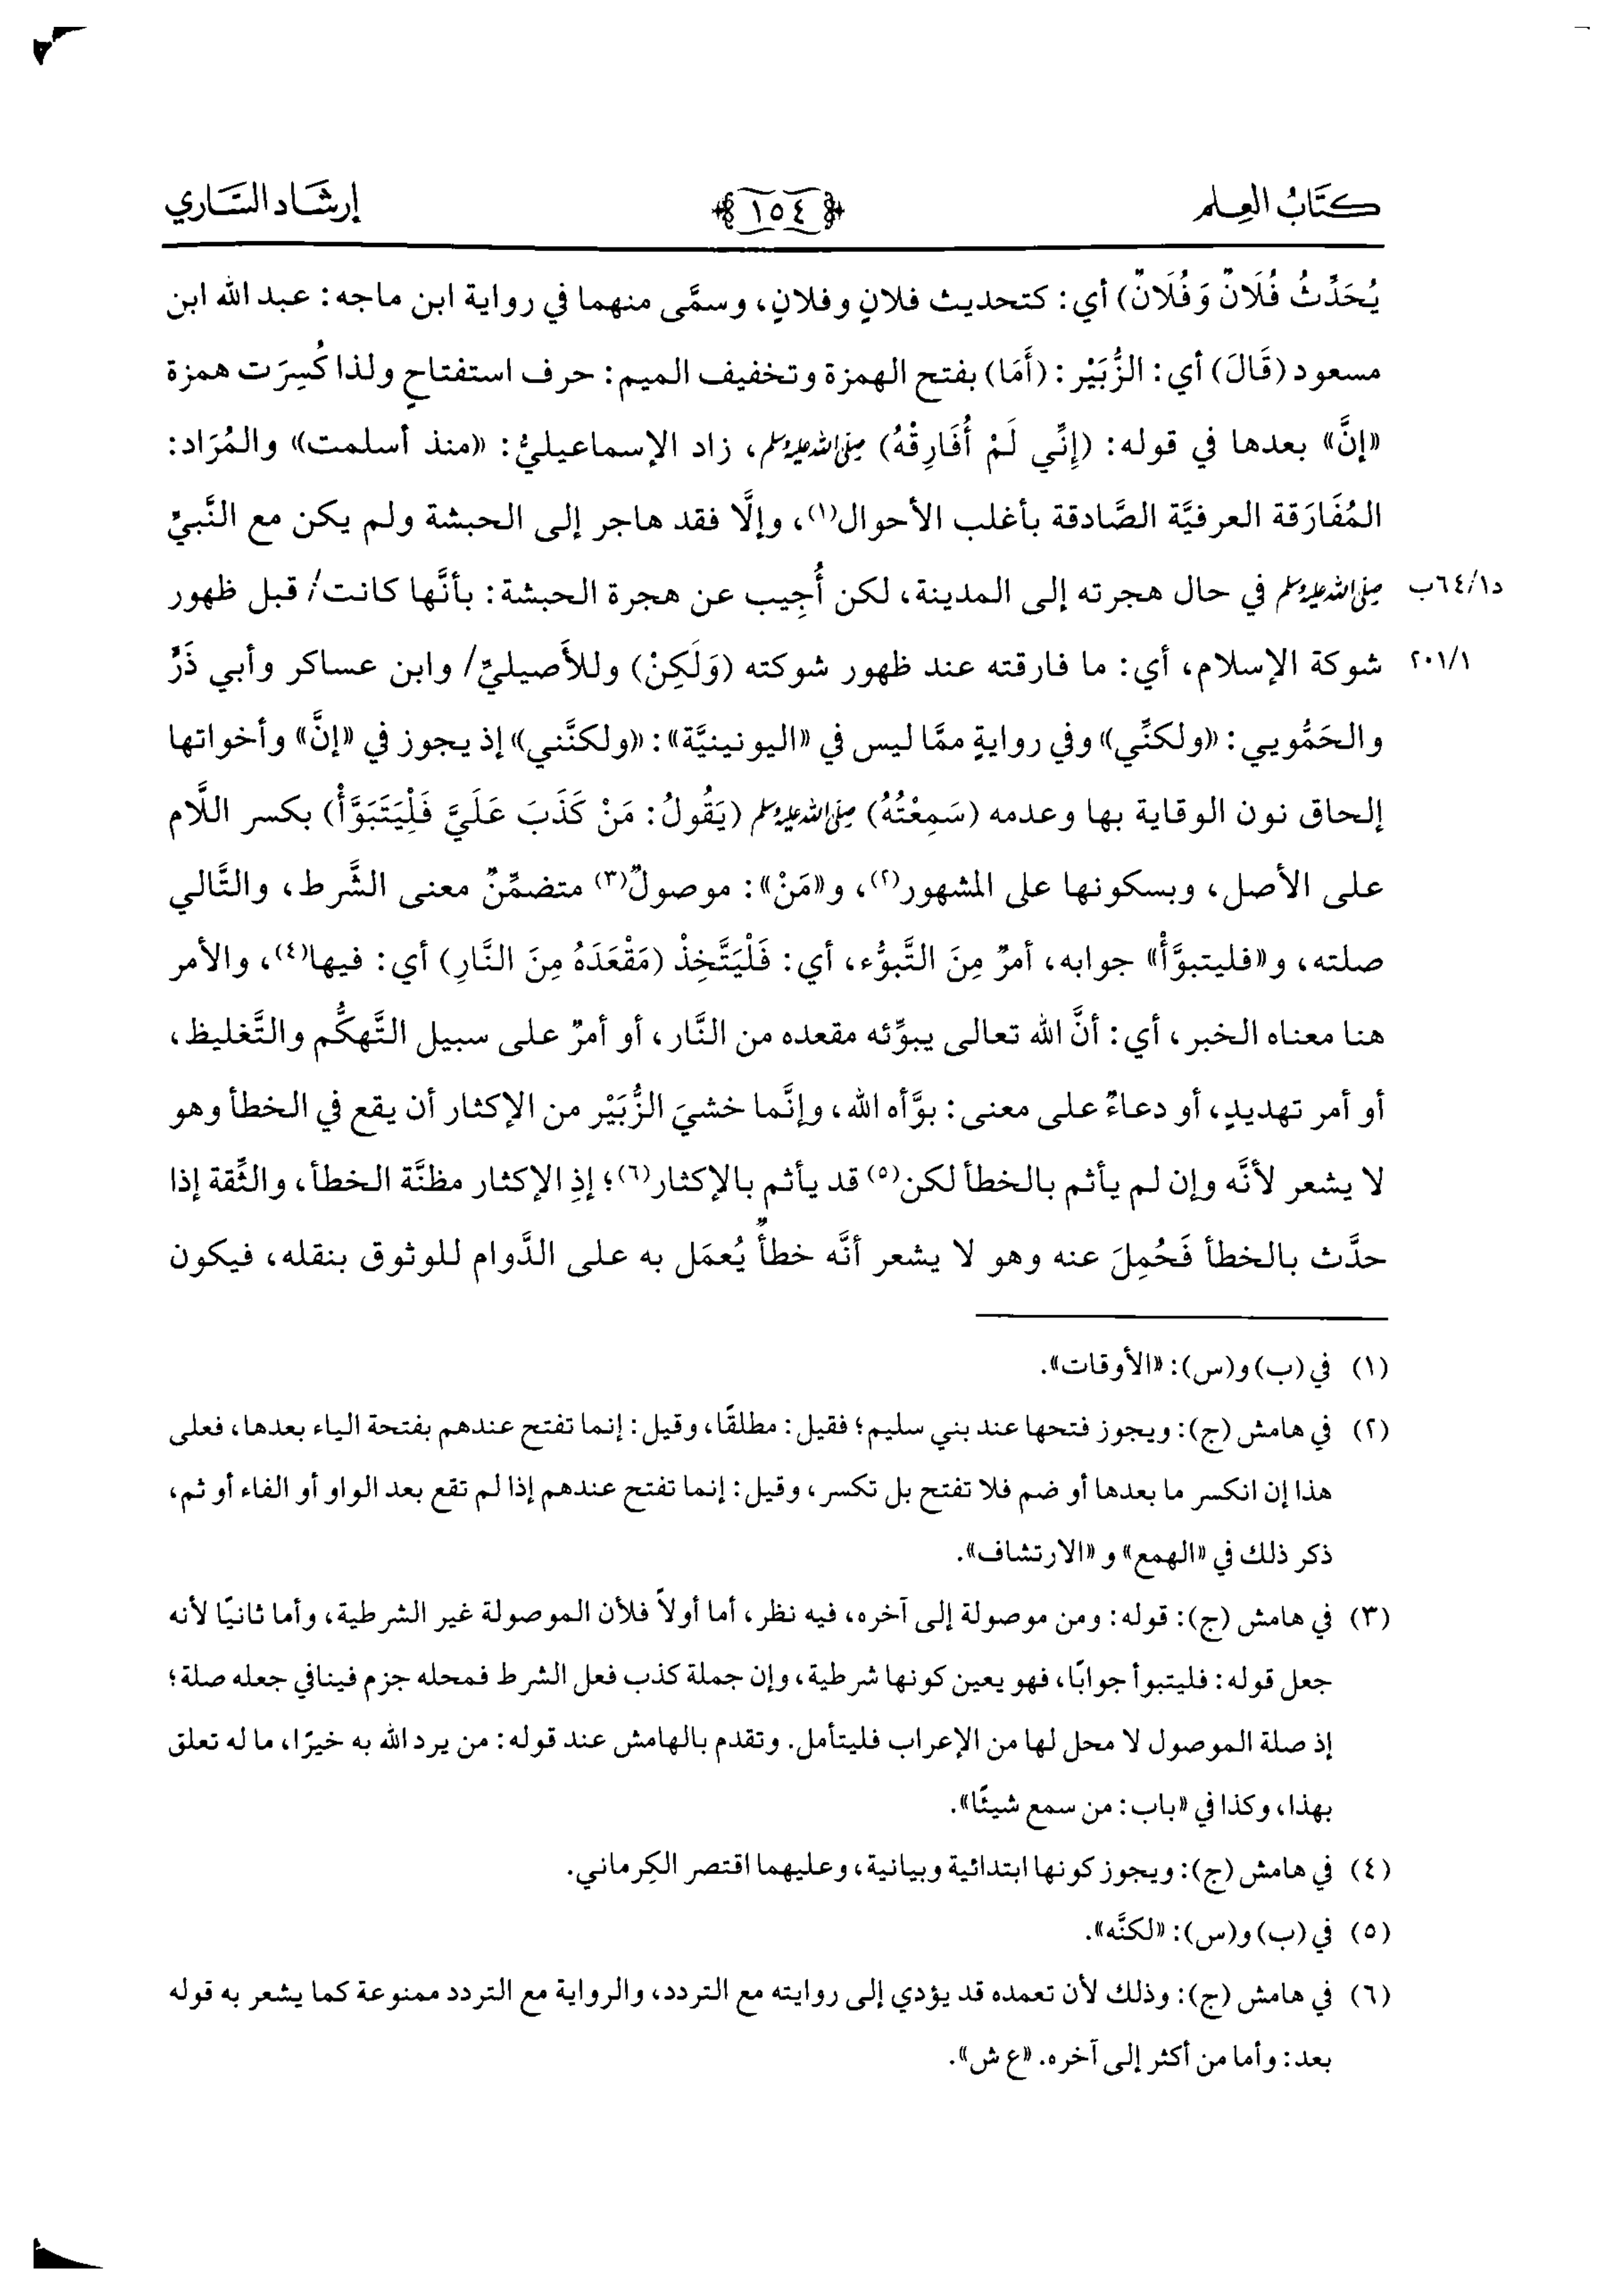 كتاب العلم ١٥٤ إرشاد الساري
يُحَدِّثُ فُلَانٌ وَفُلَانٌ) أي: كتحديث فلانٍ وفلانٍ، وسمَّى منهما في رواية ابن ماجه: عبد الله ابن
مسعود (قَالَ) أي: الزُّبَيْر: (أَمَا) بفتح الهمزة وتخفيف الميم: حرف استفتاحٍ ولذا كُسِرَت همزة
«إنَّ» بعدها في قوله: (إِنِّي لَمْ أُفَارِقْهُ) صلى الله عليه وسلم، زاد الإسماعيليُّ: «منذ أسلمت» والمُرَاد:
المُفَارَقة العرفيَّة الصَّادقة بأغلب الأحوال(١)، وإلَّا فقد هاجر إلى الحبشة ولم يكن مع النَّبيِّ
صلى الله عليه وسلم في حال هجرته إلى المدينة، لكن أُجِيب عن هجرة الحبشة: بأنَّها كانت/ قبل ظهور د٦٤/١ب
شوكة الإسلام، أي: ما فارقته عند ظهور شوكته (وَلَكِنْ) وللأَصيليِّ/ وابن عساكر وأبي ذَرٍّ ٢٠١/١
والحَمُّويي: «ولكنِّي» وفي روايةٍ ممَّا ليس في «اليونينيَّة»: «ولكنَّني» إذ يجوز في «إنَّ» وأخواتها
إلحاق نون الوقاية بها وعدمه (سَمِعْتُهُ) صلى الله عليه وسلم (يَقُولُ: مَنْ كَذَبَ عَلَيَّ فَلْيَتَبَوَّأْ) بكسر اللَّام
على الأصل، وبسكونها على المشهور(٢)، و«مَنْ»: موصولٌ(٣) متضمِّنٌ معنى الشَّرط، والتَّالي
صلته، و«فليتبوَّأ» جوابه، أمرٌ مِنَ التَّبوُّء، أي: فَلْيَتَّخِذْ (مَقْعَدَهُ مِنَ النَّارِ) أي: فيها(٤)، والأمر
هنا معناه الخبر، أي: أنَّ الله تعالى يبوِّئه مقعده من النَّار، أو أمرٌ على سبيل التَّهكُّم والتَّغليظ،
أو أمر تهديدٍ، أو دعاءٌ على معنى: بوَّأه الله، وإنَّما خشيَ الزُّبَيْر من الإكثار أن يقع في الخطأ وهو
لا يشعر لأنَّه وإن لم يأثم بالخطأ لكن(٥) قد يأثم بالإكثار(٦)؛ إذِ الإكثار مظنَّة الخطأ، والثِّقة إذا
حدَّث بالخطأ فَحُمِلَ عنه وهو لا يشعر أنَّه خطأٌ يُعمَل به على الدَّوام للوثوق بنقله، فيكون
(١) في (ب) و(س): «الأوقات».
(٢) في هامش (ج): ويجوز فتحها عند بني سليم؛ فقيل: مطلقًا، وقيل: إنما تفتح عندهم بفتحة الياء بعدها، فعلى
هذا إن انكسر ما بعدها أو ضم فلا تفتح بل تكسر، وقيل: إنما تفتح عندهم إذا لم تقع بعد الواو أو الفاء أو ثم،
ذكر ذلك في «الهمع» و «الارتشاف».
(٣) في هامش (ج): قوله: ومن موصولة إلى آخره، فيه نظر، أما أولاً فلأن الموصولة غير الشرطية، وأما ثانيًا لأنه
جعل قوله: فليتبوأ جوابًا، فهو يعين كونها شرطية، وإن جملة كذب فعل الشرط فمحله جزم فينافي جعله صلة؛
إذ صلة الموصول لا محل لها من الإعراب فليتأمل. وتقدم بالهامش عند قوله: من يرد الله به خيرًا، ما له تعلق
بهذا، وكذا في «باب: من سمع شيئًا».
(٤) في هامش (ج): ويجوز كونها ابتدائية وبيانية، وعليهما اقتصر الكِرماني.
(٥) في (ب) و(س): «لكنَّه».
(٦) في هامش (ج): وذلك لأن تعمده قد يؤدي إلى روايته مع التردد، والرواية مع التردد ممنوعة كما يشعر به قوله
بعد: وأما من أكثر إلى آخره. «ع ش».